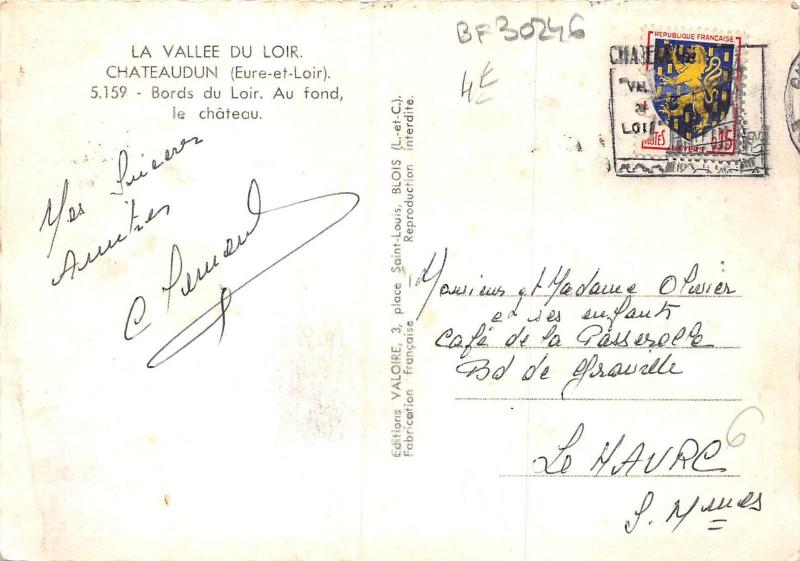 BF 30246
4€
LA VALLEE DU LOIR.
CHATEAUDUN (Eure-et-Loir).
5.159 - Bords du Loir. Au fond,
le château.
Mes Sincères
Amitiés
Editions VALOIRE, 3, place Saint-Louis, BLOIS (L.-et-C.).
Fabrication française Reproduction interdite.
REPUBLIQUE FRANÇAISE
POSTES
0,15
Monsieur et Madame Olivier
et ses enfants
Café de la Passerelle
Bd de Graville
Le HAVRE
S. Mmes
6